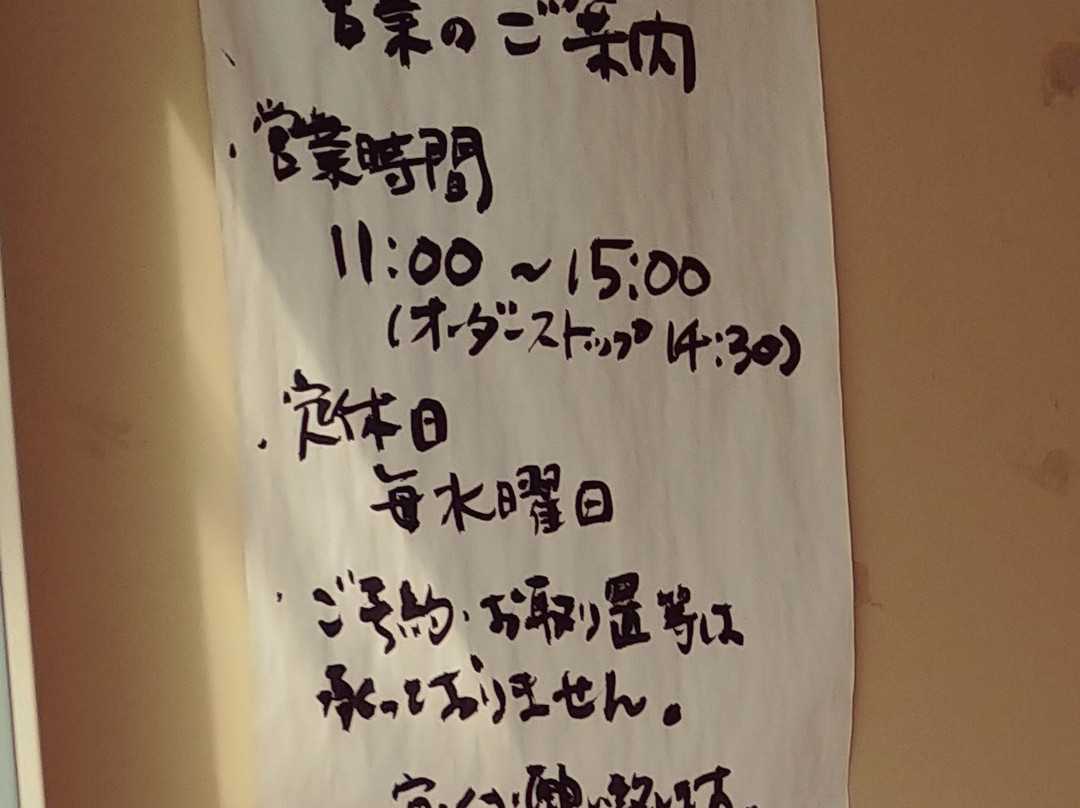 営業のご案内
・営業時間
11:00～15:00
(オーダーストップ14:30)
・定休日
毎水曜日
・ご予約・お取り置等は
承っておりません。
宜しくお願い致します。